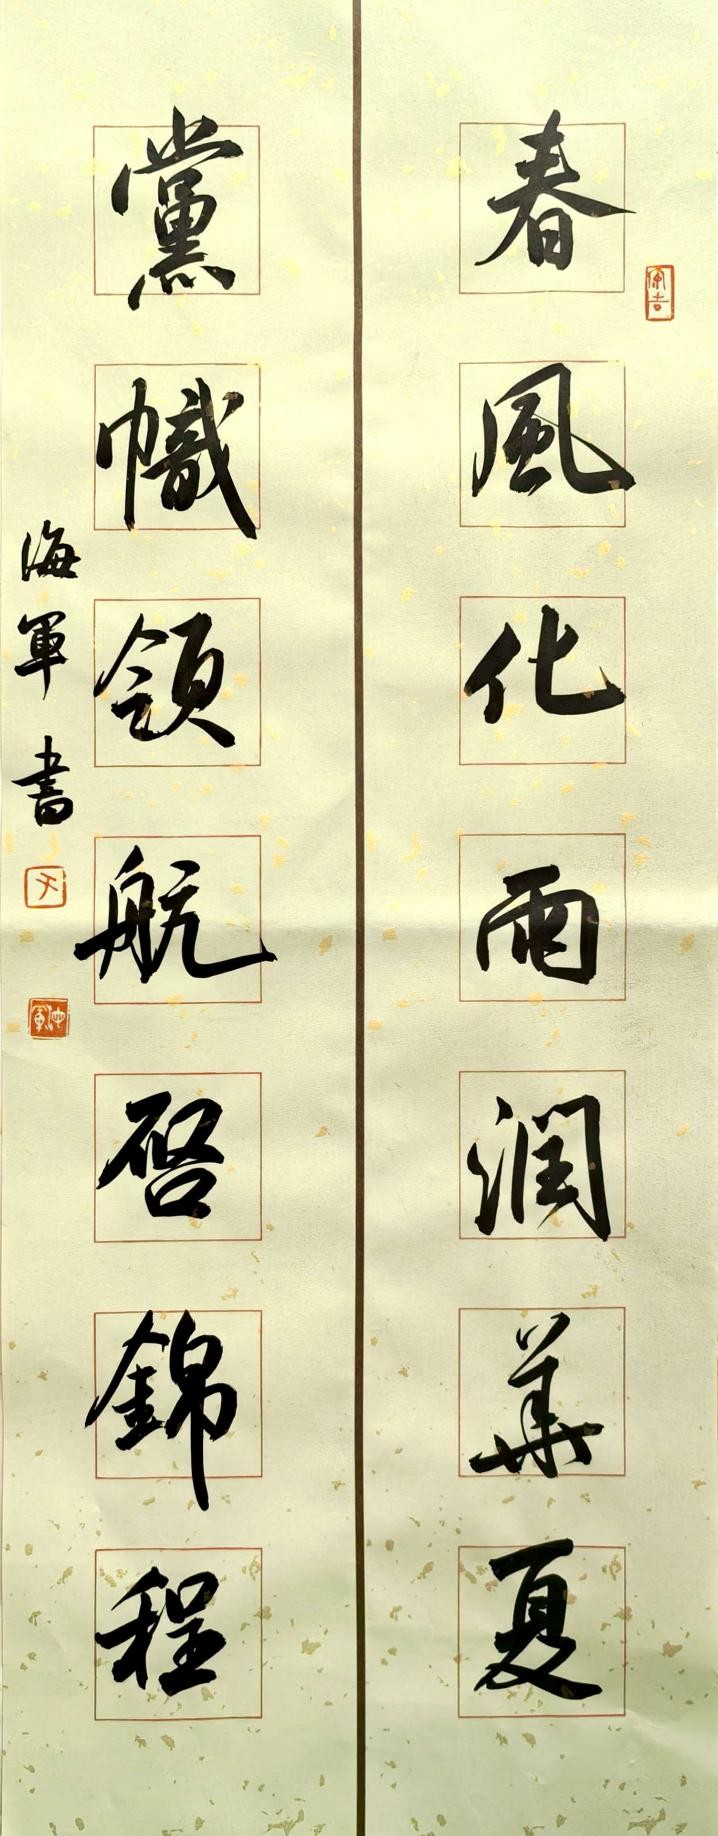 春風化雨潤華夏
黨幟領航啓錦程
海軍書